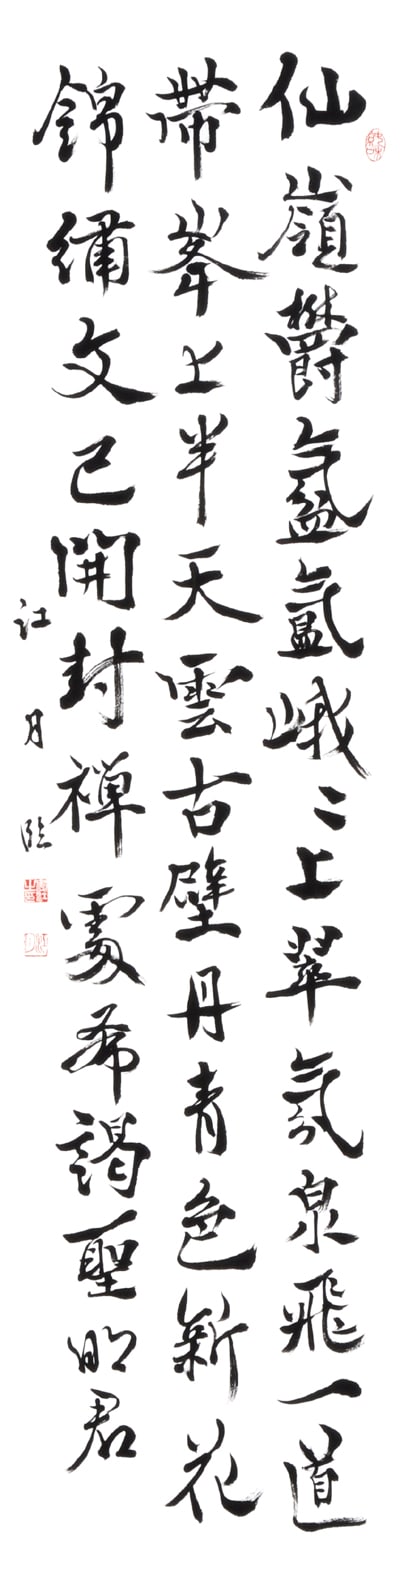 仙嶺鬱氤氳峨々上翠氛泉飛一道
帶峯上半天雲古壁丹青色新花
錦繡文已開封禪處希謁聖明君
江月臨